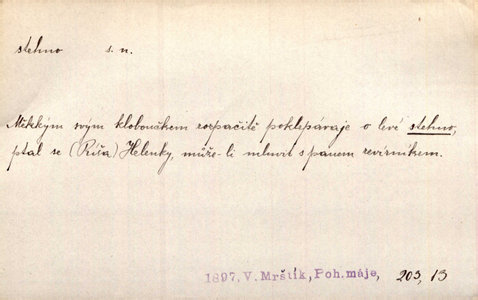 stehno s. n.
Měkkým svým kloboučkem rozpačitě poklepávaje o levé stehno,
ptal se (Ríša) Helenky, může-li mluvit s panem revírníkem.
1897, V. Mrštík, Poh. máje, 203, 13